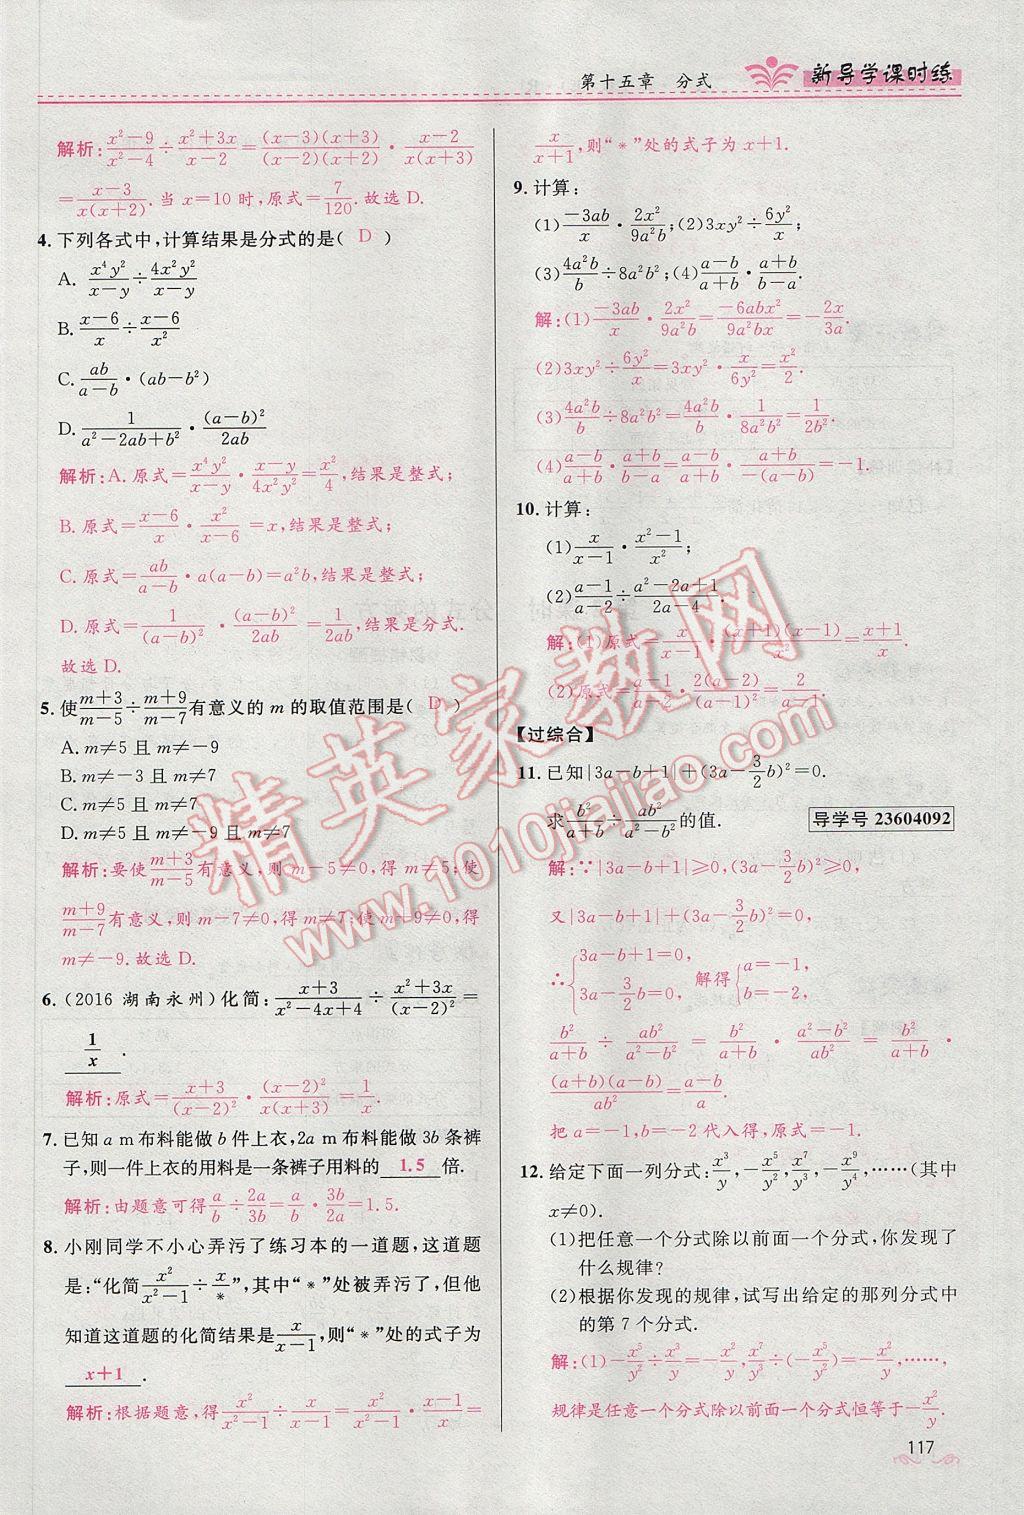 第十五章 分式
新导学课时练
解析:$\frac{x^2-9}{x^2-4}÷\frac{x^2+3x}{x-2}=\frac{(x-3)(x+3)}{(x-2)(x+2)}·\frac{x-2}{x(x+3)}$
$=\frac{x-3}{x(x+2)}$.当 x=10 时,原式=$\frac{7}{120}$.故选 D.
4.下列各式中,计算结果是分式的是( D )
A. $\frac{x^4y^2}{x-y}÷\frac{4x^2y^2}{x-y}$
B. $\frac{x-6}{x}÷\frac{x-6}{x^2}$
C. $\frac{ab}{a-b}·(ab-b^2)$
D. $\frac{1}{a^2-2ab+b^2}·\frac{(a-b)^2}{2ab}$
解析:A.原式=$\frac{x^4y^2}{x-y}·\frac{x-y}{4x^2y^2}=\frac{x^2}{4}$,结果是整式;
B.原式=$\frac{x-6}{x}·\frac{x^2}{x-6}=x$,结果是整式;
C.原式=$\frac{ab}{a-b}·a(a-b)=a^2b$,结果是整式;
D.原式=$\frac{1}{(a-b)^2}·\frac{(a-b)^2}{2ab}=\frac{1}{2ab}$,结果是分式.
故选 D.
5.使$\frac{m+3}{m-5}÷\frac{m+9}{m-7}$有意义的 m 的取值范围是( D )
A. m≠5 且 m≠-9
B. m≠-3 且 m≠7
C. m≠5 且 m≠7
D. m≠5 且 m≠-9 且 m≠7
解析:要使$\frac{m+3}{m-5}$有意义,则 m-5≠0,得 m≠5;使
$\frac{m+9}{m-7}$有意义,则 m-7≠0,得 m≠7;使 m-9≠0,得
m≠-9.故选 D.
6.(2016 湖南永州)化简:$\frac{x+3}{x^2-4x+4}÷\frac{x^2+3x}{(x-2)^2}=$
$\frac{1}{x}$ .
解析:原式=$\frac{x+3}{(x-2)^2}·\frac{(x-2)^2}{x(x+3)}=\frac{1}{x}$.
7.已知 a m布料能做 b 件上衣,2a m布料能做 3b 条裤
子,则一件上衣的用料是一条裤子用料的 1.5 倍.
解析:由题意可得$\frac{a}{b}÷\frac{2a}{3b}=\frac{a}{b}·\frac{3b}{2a}=1.5$.
8.小刚同学不小心弄污了练习本的一道题,这道题
是:“化简$\frac{x^2}{x^2-1}÷\frac{x}{*}$”,其中“*”处被弄污了,但他
知道这道题的化简结果是$\frac{x}{x-1}$,则“*”处的式子为
x+1 .
解析:根据题意,得$\frac{x^2}{x^2-1}÷\frac{x}{x-1}=\frac{x^2}{x^2-1}·\frac{x-1}{x}=$
$\frac{x}{x+1}$,则“*”处的式子为 x+1.
9.计算:
(1)$\frac{-3ab}{x}·\frac{2x^2}{9a^2b}$;(2)$3xy^2÷\frac{6y^2}{x}$;
(3)$\frac{4a^2b}{b}÷8a^2b^2$;(4)$\frac{a-b}{a+b}·\frac{a+b}{b-a}$.
解:(1)$\frac{-3ab}{x}·\frac{2x^2}{9a^2b}=\frac{-6abx^2}{9a^2bx}=-\frac{2x}{3a}$.
(2)$3xy^2÷\frac{6y^2}{x}=3xy^2·\frac{x}{6y^2}=\frac{x^2}{2}$.
(3)$\frac{4a^2b}{b}÷8a^2b^2=\frac{4a^2b}{b}·\frac{1}{8a^2b^2}=\frac{1}{2b^2}$.
(4)$\frac{a-b}{a+b}·\frac{a+b}{b-a}=\frac{a-b}{a+b}·\frac{a+b}{-(a-b)}=-1$.
10.计算:
(1)$\frac{x}{x-1}·\frac{x^2-1}{x^2}$;
(2)$\frac{a-1}{a-2}÷\frac{a^2-2a+1}{2a-4}$.
解:(1)原式=$\frac{x}{x-1}·\frac{(x+1)(x-1)}{x^2}=\frac{x+1}{x}$.
(2)原式=$\frac{a-1}{a-2}·\frac{2(a-2)}{(a-1)^2}=\frac{2}{a-1}$.
【过综合】
11.已知$|3a-b+1|+(3a-\frac{3}{2}b)^2=0$.
求$\frac{b^2}{a+b}÷\frac{ab^2}{a^2-b^2}$的值.
导学号 23604092
解:∵$|3a-b+1|≥0,(3a-\frac{3}{2}b)^2≥0$,
又$|3a-b+1|+(3a-\frac{3}{2}b)^2=0$,
∴$\begin{cases}3a-b+1=0,\\3a-\frac{3}{2}b=0,\end{cases}$解得$\begin{cases}a=-1,\\b=-2.\end{cases}$
$\frac{b^2}{a+b}÷\frac{ab^2}{a^2-b^2}=\frac{b^2}{a+b}·\frac{a^2-b^2}{ab^2}=\frac{b^2}{a+b}·$
$\frac{(a+b)(a-b)}{ab^2}=\frac{a-b}{a}$.
把 a=-1,b=-2 代入得,原式=-1.
12.给定下面一列分式:$\frac{x^3}{y},-\frac{x^5}{y^2},\frac{x^7}{y^3},-\frac{x^9}{y^4}$,……(其中
x≠0).
(1)把任意一个分式除以前面一个分式,你发现了
什么规律?
(2)根据你发现的规律,试写出给定的那列分式中
的第 7 个分式.
解:(1)$-\frac{x^5}{y^2}÷\frac{x^3}{y}=-\frac{x^2}{y},\frac{x^7}{y^3}÷(-\frac{x^5}{y^2})=-\frac{x^2}{y}$,……,
规律是任意一个分式除以前面一个分式恒等于$-\frac{x^2}{y}$.
117
精英家教网
www.1010jiajiao.com